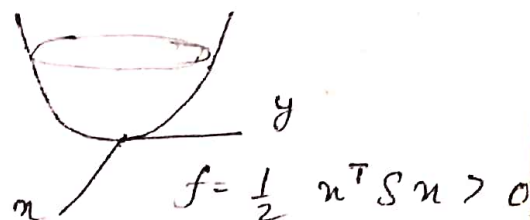 y
x f = 1/2 x^T S x > 0